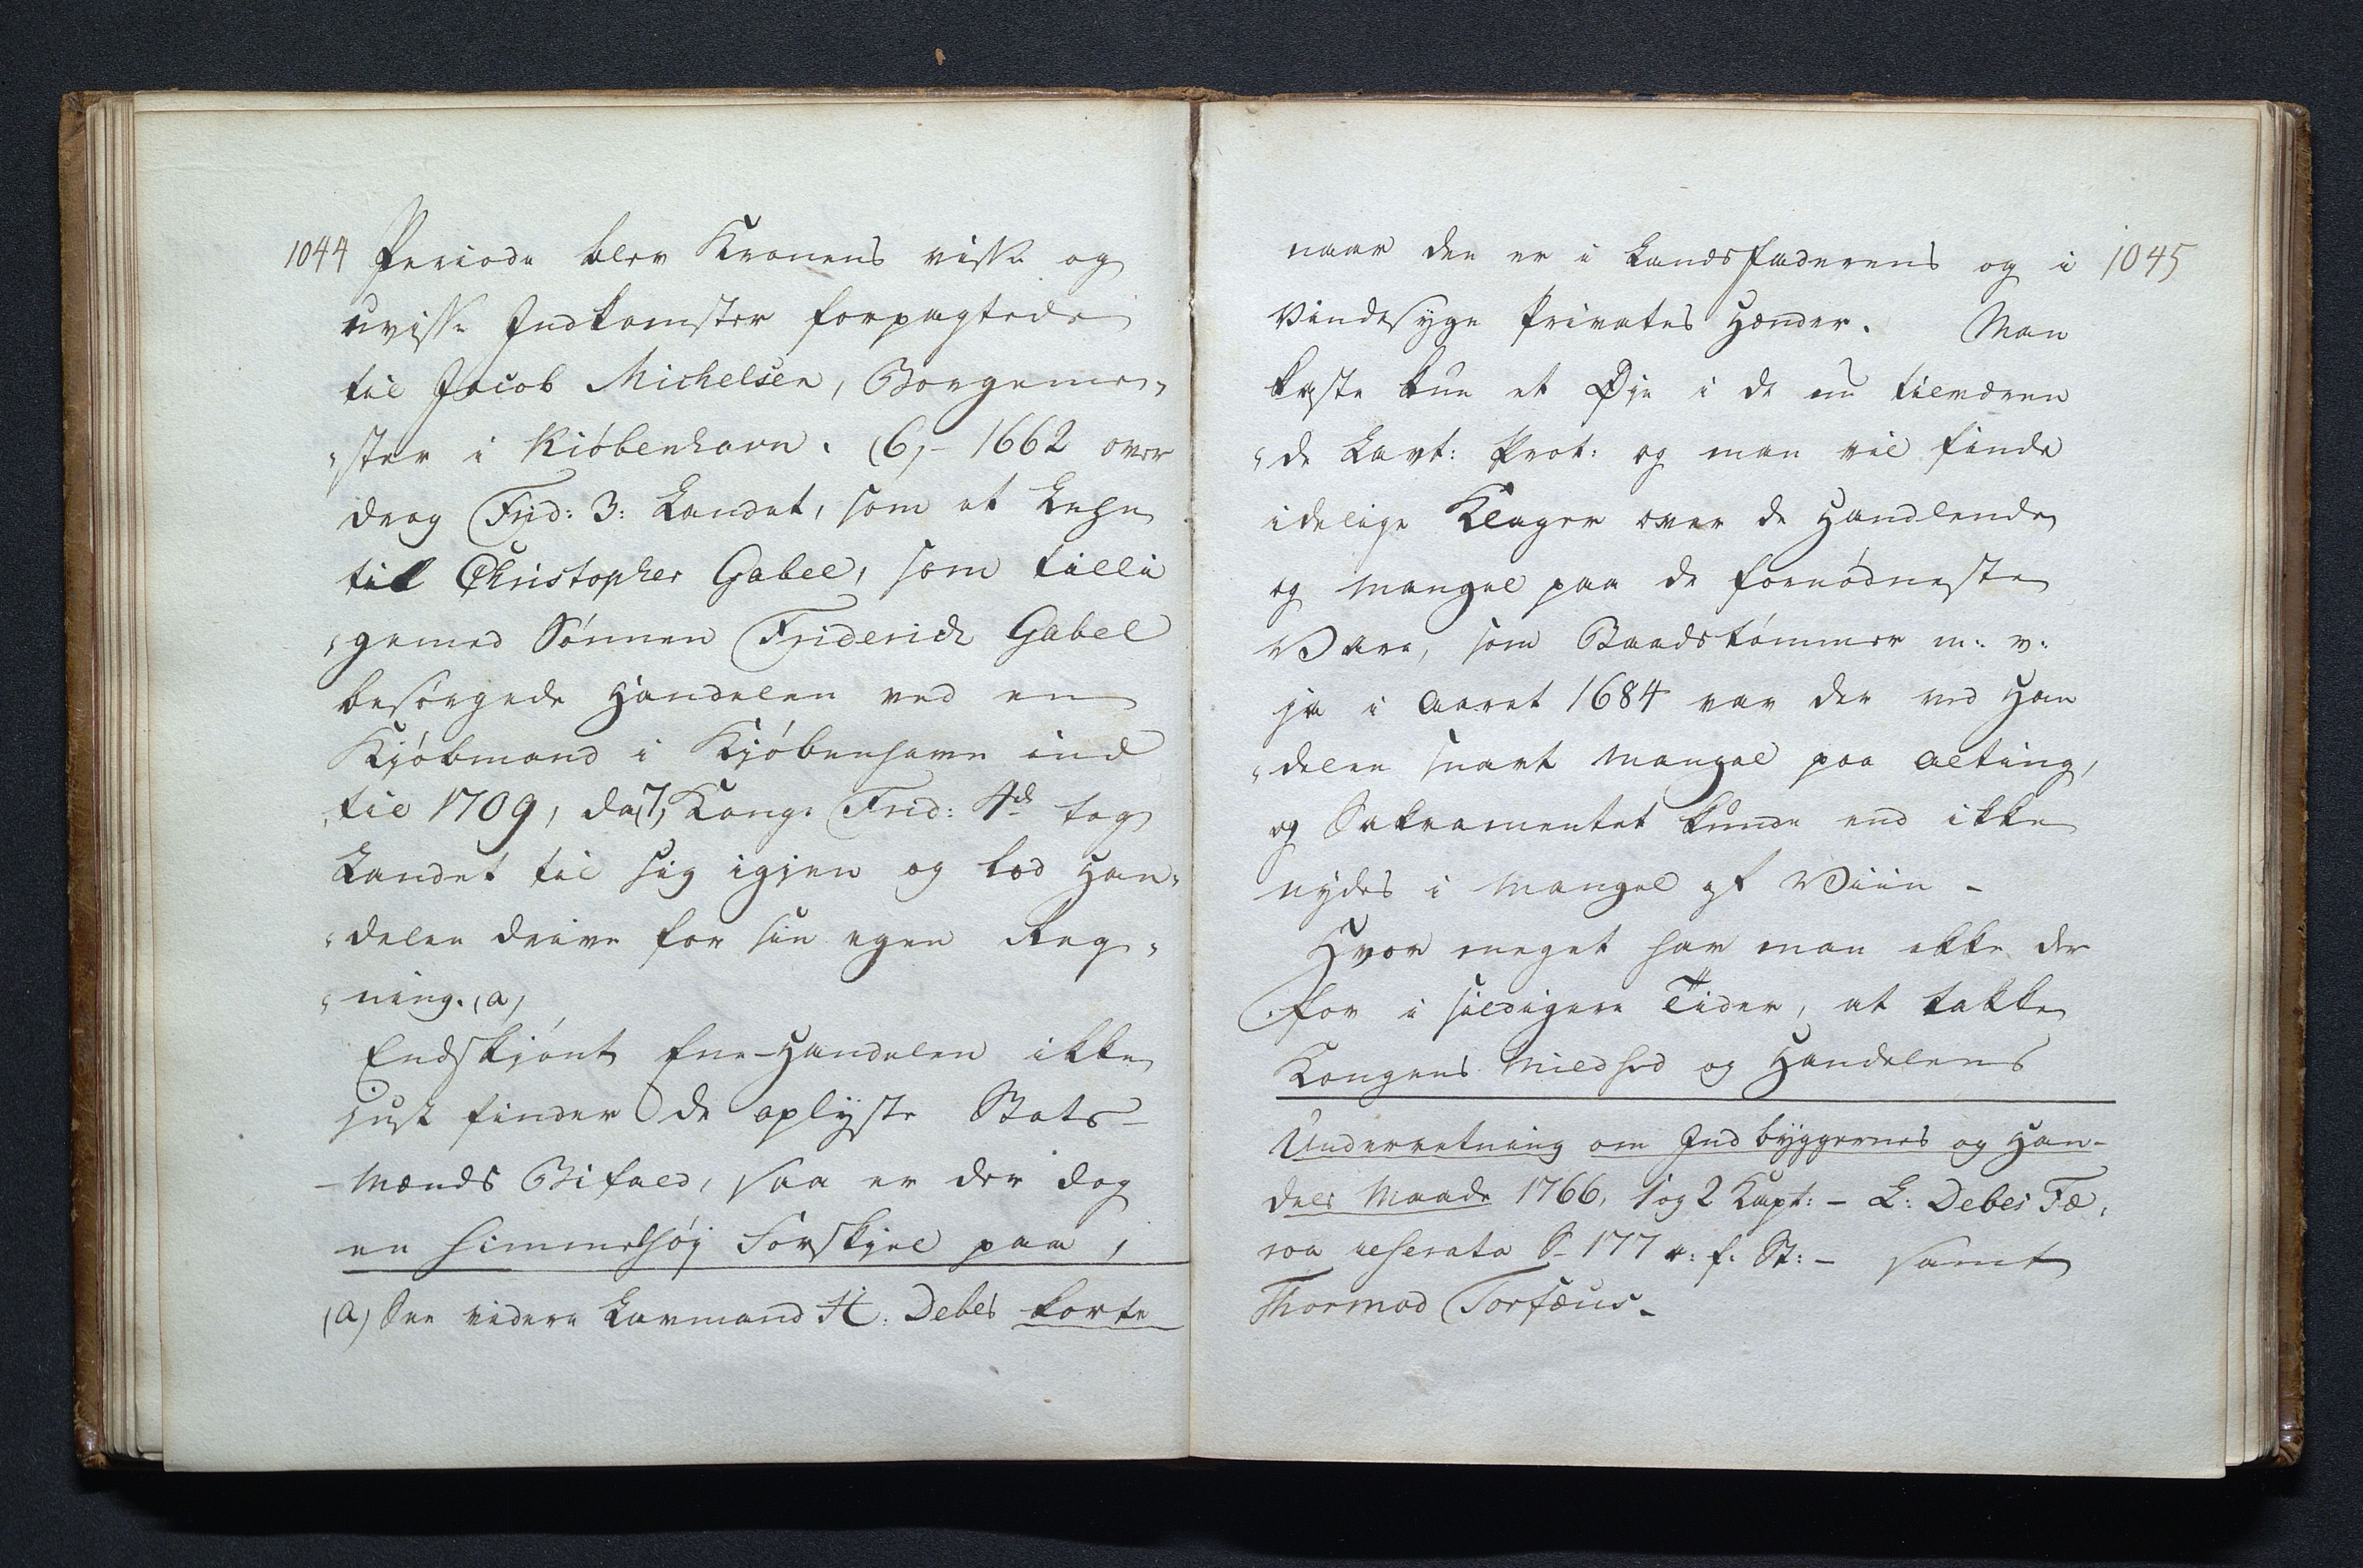 1044 Periode blev Kronens visse og
uvisse Indkomster forpagtede
til Jacob Michelsen, Borgeme„
„ster i Kiöbenhavn. (6,- 1662 over
drog Frid: 3: Landet, som et Lehn
til Christopher Gabel, som tilli
„gemed Sönnen Friderich Gabel
besörgede Handelen ved en
Kjöbmand i Kjöbenhavn ind
„til 1709, da (7, Kong. Frid: 4de tog
Landet til sig igjen og lod Han„
„delen drive for sin egen Reg„
„ning. (a)
Endskjönt Ene-Handelen ikke
just finder de oplyste Stats-
-Mænds Bifald, saa er der dog
en himmelhöj Forskjel paa,
(a) See videre Lavmand H: Debes korte
naar den er i Landsfaderens og i 1045
Vindesyge Privates Hænder. Man
kaste kun et Øje i de nu tilværen
„de Lavt: Prot: og man vil finde
idelige Klager over de Handlende
og Mangel paa de fornödneste
Vare, som Baadstömmer m: v:
ja i Aaret 1684 var der ved Han
„delen snart Mangel paa alting,
og Sakramentet kunde end ikke
nydes i Mangel af Viin -
Hvor meget har man ikke der
„for i sildigere Tider, at takke
Kongens Mildhed og Handelens
Underretning om Indbyggernes og Han-
dels Maade 1766, 1 og 2 Kapt: - L: Debes Fæ„
roa reserata S- 177 o: f: St: - samt
Thormod Torfæus-